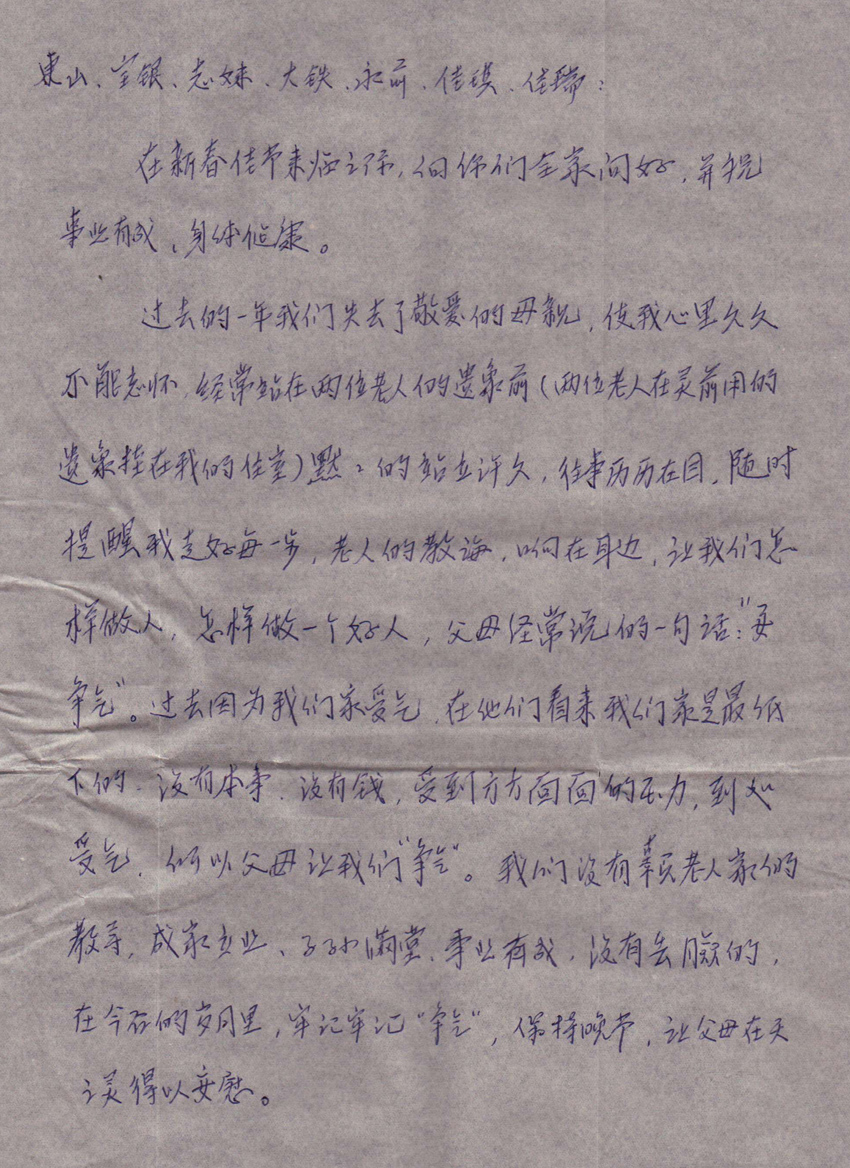 東山、宝银、志妹、大铁、永前、佳琪、佳瑞:
在新春佳节来临之际,向你们全家问好,并祝
事业有成、身体健康。
过去的一年我们失去了敬爱的母亲,使我心里久久
不能忘怀,经常站在两位老人的遗象前(两位老人在灵前用的
遗象挂在我的住室)默々的站立许久,往事历历在目,随时
提醒我走好每一步,老人的教诲,响在耳边,让我们怎
样做人,怎样做一个好人,父母经常说的一句话:"要
争气"。过去因为我们家受气,在他们看来我们家是最低
下的、没有本事、没有钱,受到方方面面的压力,到处
受气,所以父母让我们"争气"。我们没有辜负老人家的
教导,成家立业、子孙满堂、事业有成,没有丢脸的,
在今后的岁月里,牢记牢记"争气",保持晚节,让父母在天
之灵得以安慰。